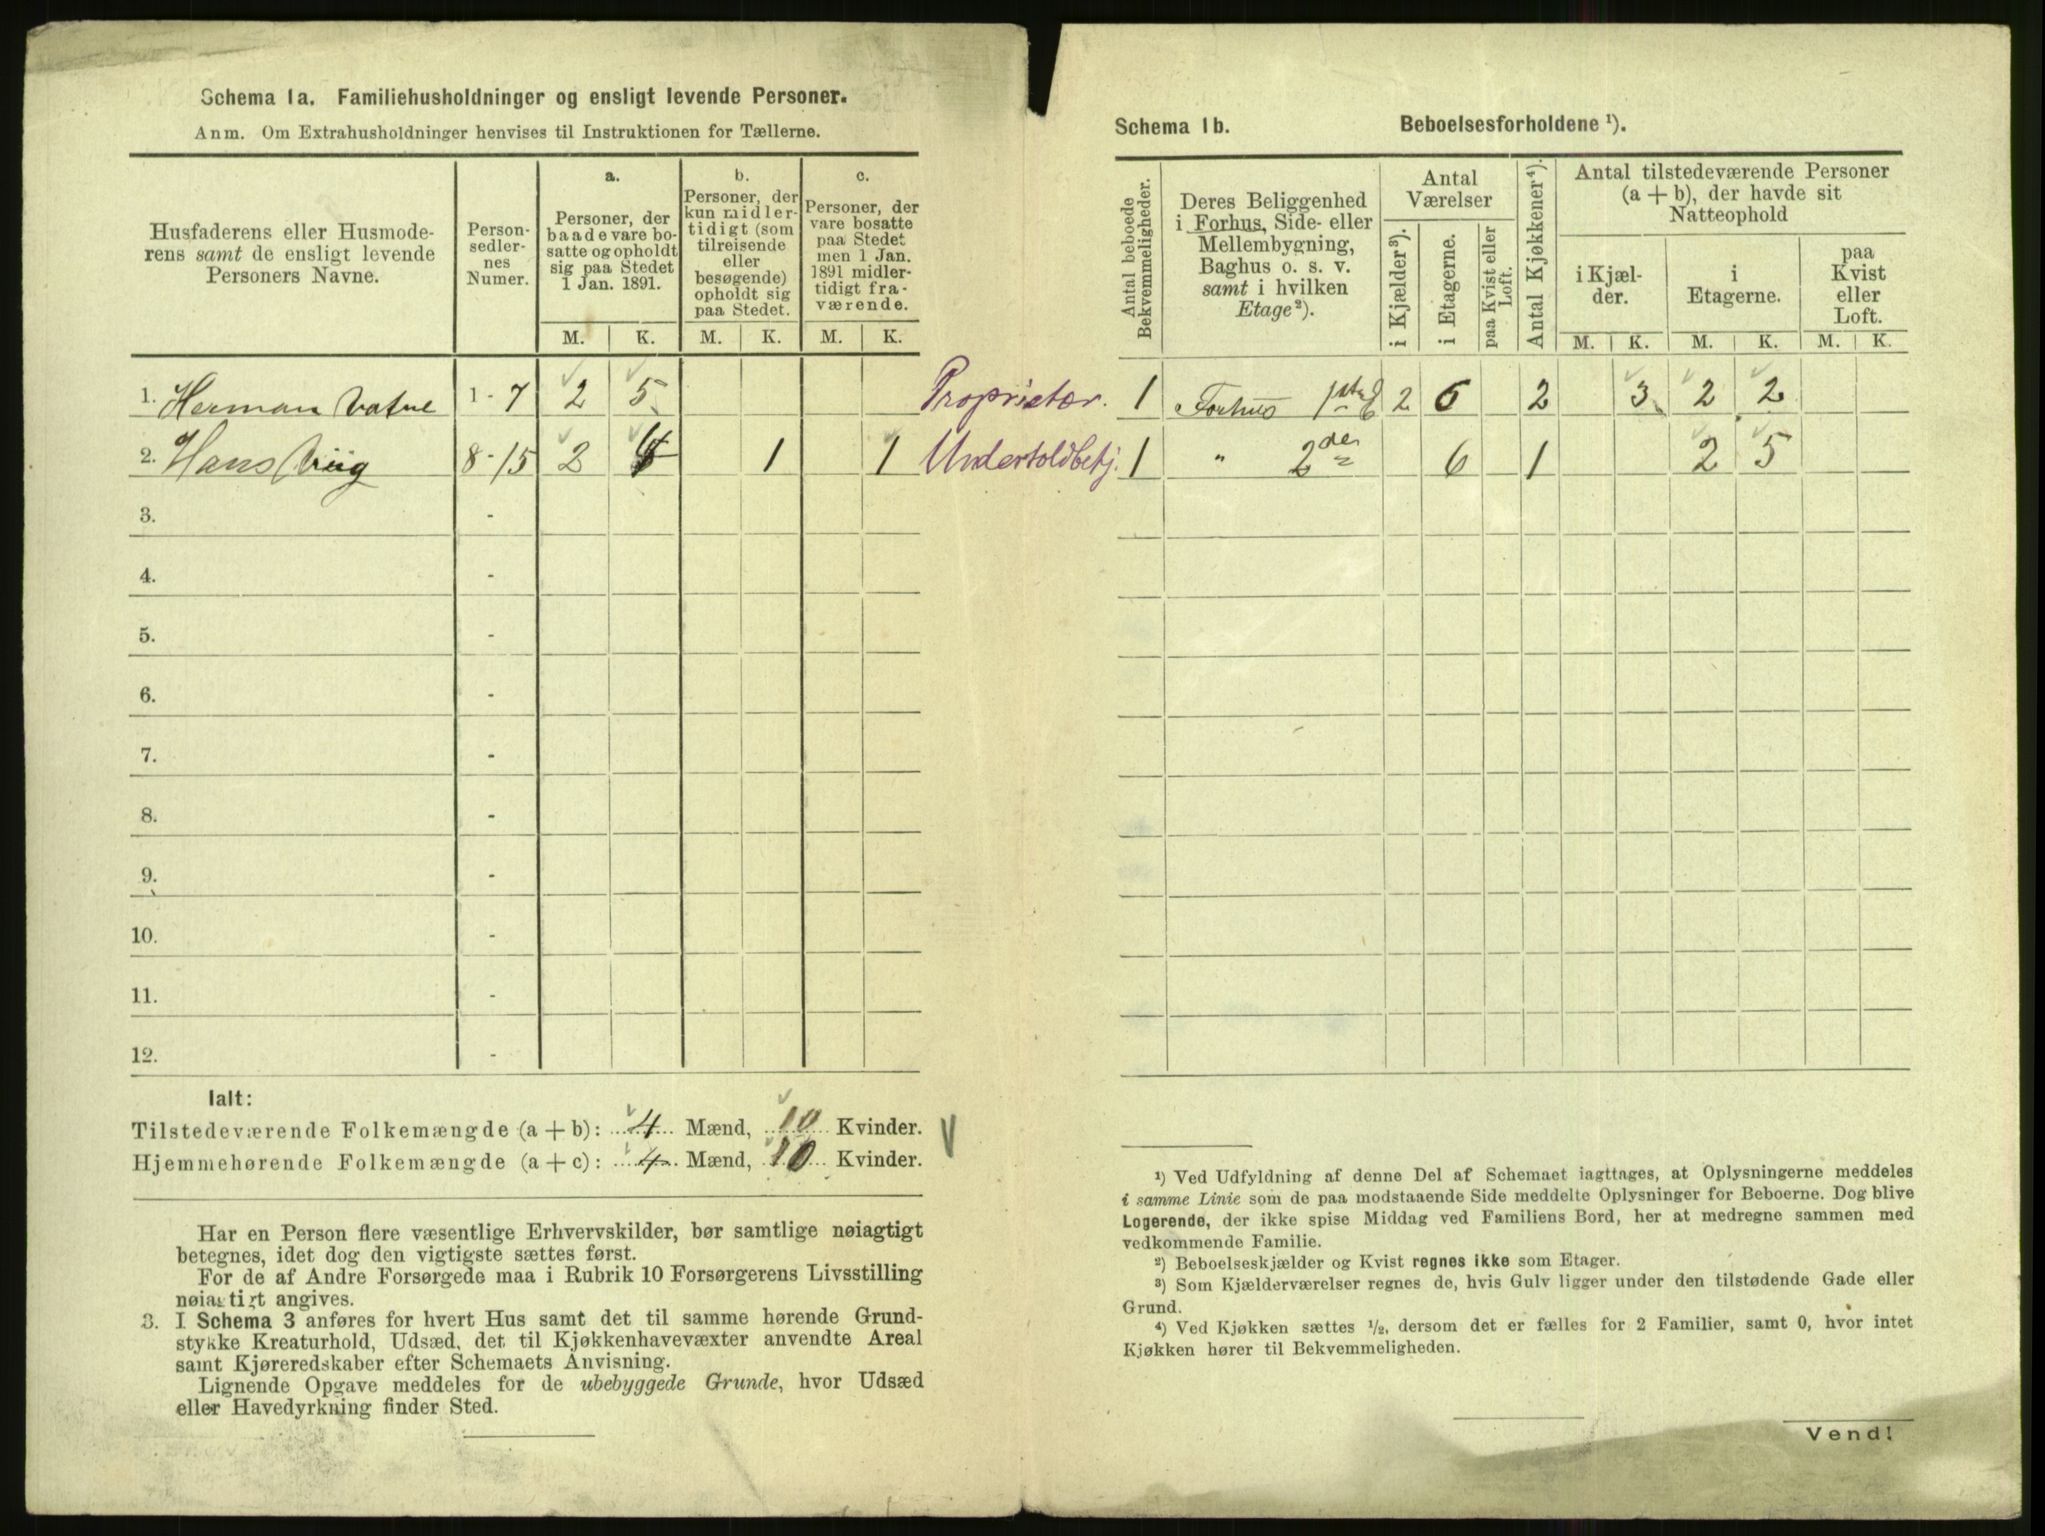 Schema 1a. Familiehusholdninger og ensligt levende Personer.
Anm. Om Extrahusholdninger henvises til Instruktionen for Tællerne.
Husfaderens eller Husmode-
rens samt de ensligt levende
Personers Navne.
Person-
sedler-
nes
Numer.
a.
Personer, der
baade vare bo-
satte og opholdt
sig paa Stedet
1 Jan. 1891.
b.
Personer, der
kun midler-
tidigt (som
tilreisende
eller
besøgende)
opholdt sig
paa Stedet.
c.
Personer, der
vare bosatte
paa Stedet
men 1 Jan.
1891 midler-
tidigt fra-
værende.
M. K. M. K. M. K.
1. Herman Vatne 1 - 7 2 5 Proprietær.
2. Hans Viig 8 - 15 2 4 1 1 Undertoldbetj.
3. -
4. -
5. -
6. -
7. -
8. -
9. -
10. -
11. -
12. -
Ialt:
Tilstedeværende Folkemængde (a + b): 4 Mænd, 10 Kvinder.
Hjemmehørende Folkemængde (a + c): 4 Mænd, 10 Kvinder.
Har en Person flere væsentlige Erhvervskilder, bør samtlige nøiagtigt
betegnes, idet dog den vigtigste sættes først.
For de af Andre Forsørgede maa i Rubrik 10 Forsørgerens Livsstilling
nøiagtigt angives.
3. I Schema 3 anføres for hvert Hus samt det til samme hørende Grund-
stykke Kreaturhold, Udsæd, det til Kjøkkenhavevæxter anvendte Areal
samt Kjøreredskaber efter Schemaets Anvisning.
Lignende Opgave meddeles for de ubebyggede Grunde, hvor Udsæd
eller Havedyrkning finder Sted.
Schema 1b. Beboelsesforholdene ¹).
Antal beboede
Bekvemmeligheder.
Deres Beliggenhed
i Forhus, Side- eller
Mellembygning,
Baghus o. s. v.
samt i hvilken
Etage²).
Antal
Værelser
i Kjælder³).
i Etagerne.
paa Kvist eller
Loft.
Antal Kjøkkener⁴).
Antal tilstedeværende Personer
(a + b), der havde sit
Natteophold
i Kjæl-
der.
i
Etagerne.
paa
Kvist
eller
Loft.
M. K. M. K. M. K.
1 Forhus 1ste E 2 6 2 3 2 2
1 " 2den 6 1 2 5
¹) Ved Udfyldning af denne Del af Schemaet iagttages, at Oplysningerne meddeles
i samme Linie som de paa modstaaende Side meddelte Oplysninger for Beboerne. Dog blive
Logerende, der ikke spise Middag ved Familiens Bord, her at medregne sammen med
vedkommende Familie.
²) Beboelseskjælder og Kvist regnes ikke som Etager.
³) Som Kjælderværelser regnes de, hvis Gulv ligger under den tilstødende Gade eller
Grund.
⁴) Ved Kjøkken sættes ½, dersom det er fælles for 2 Familier, samt 0, hvor intet
Kjøkken hører til Bekvemmeligheden.
Vend!